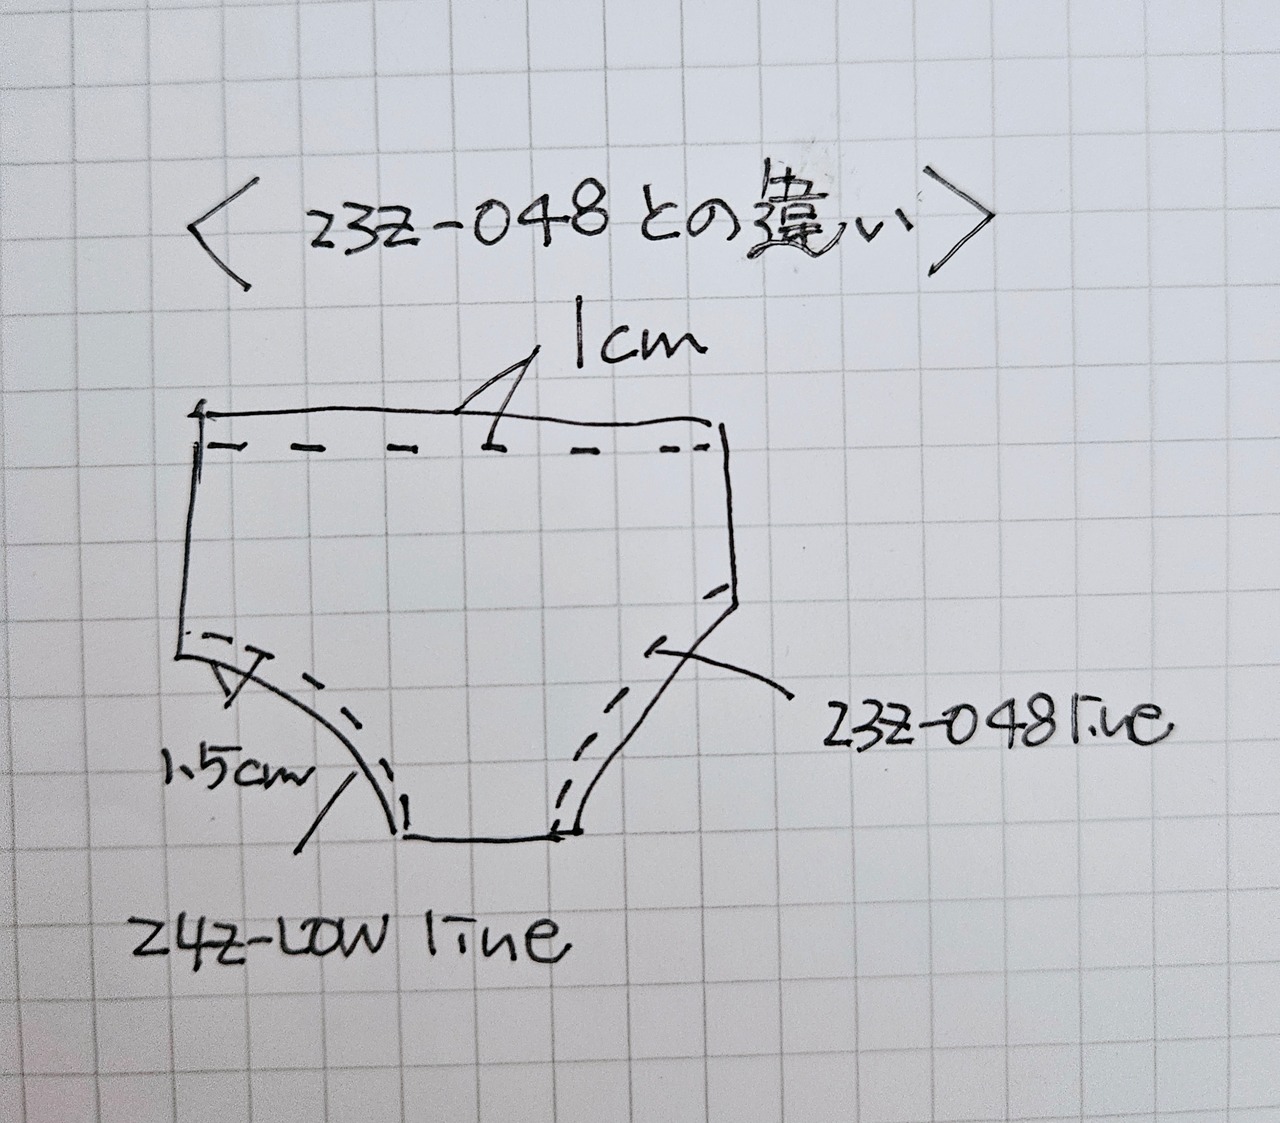 <23Z-048との違い>
1cm
23Z-048 line
1.5cm
24Z-LOW line